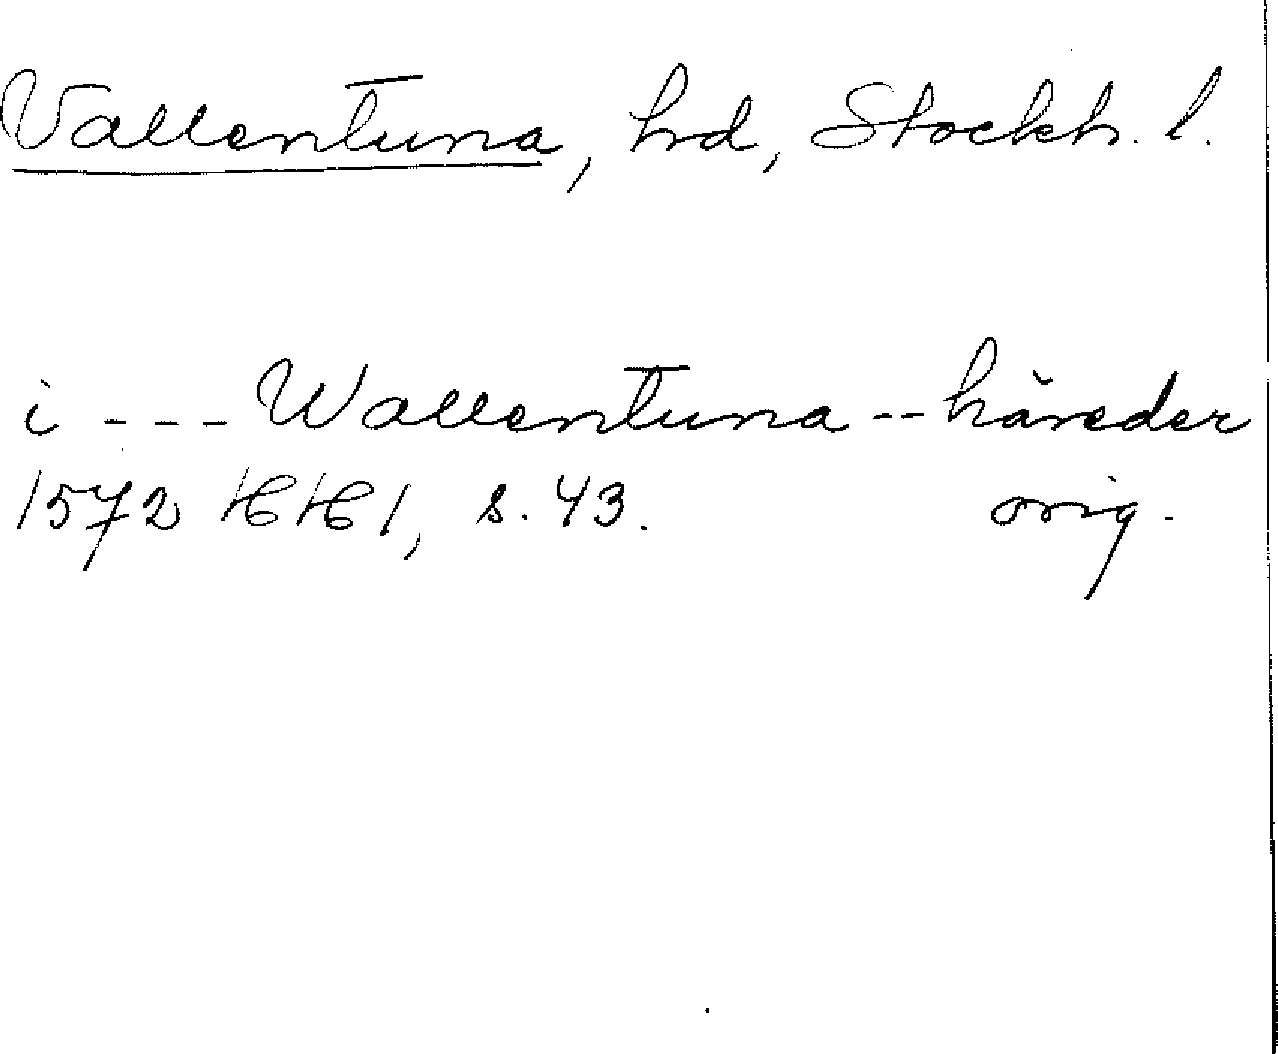 Vallentuna, hd, Stockh. l.
i --- Wallentuna -- häreder
1572 HH 1, s. 43. orig.